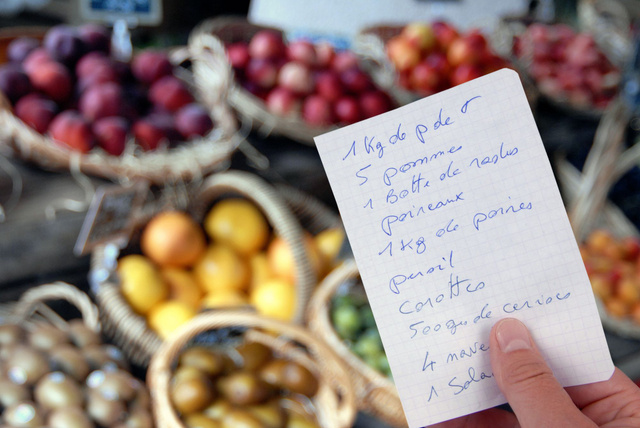 1 Kg de p de
5 pommes
1 Botte de radis
poireaux
1 Kg de poires
persil
carottes
500g de cerises
4 nave
1 Sala